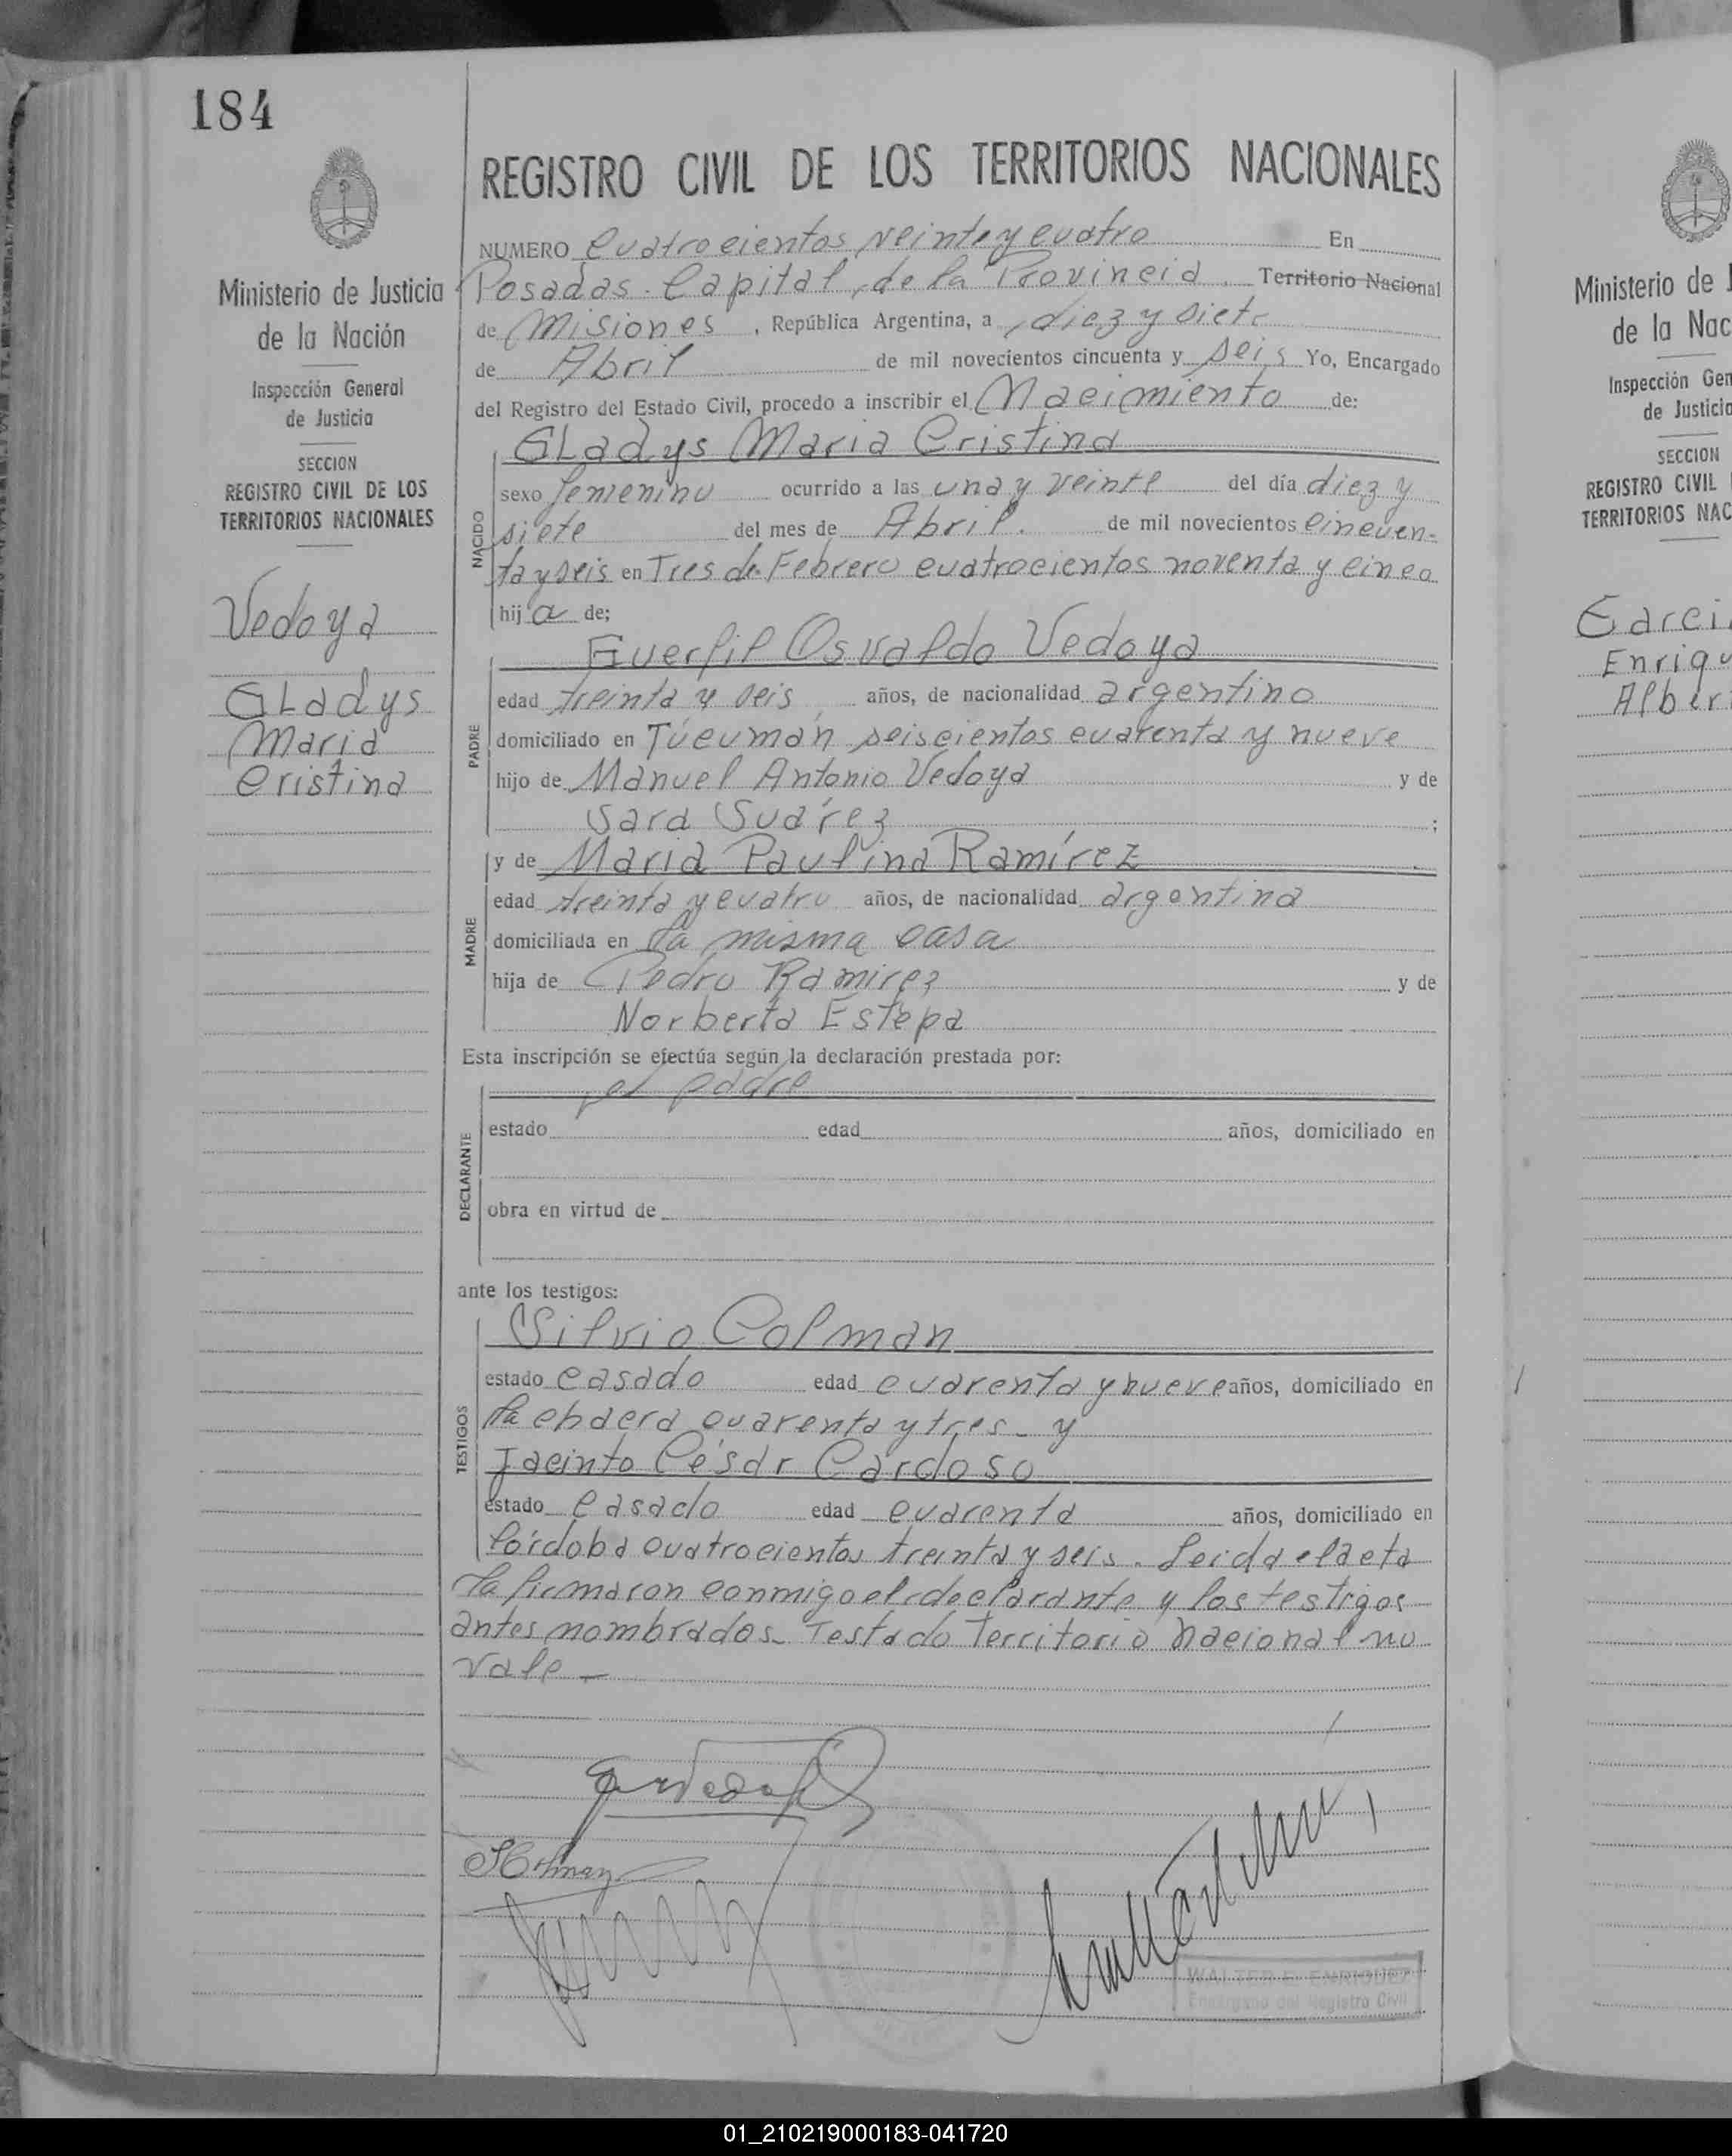 184
REGISTRO CIVIL DE LOS TERRITORIOS NACIONALES
Ministerio de Justicia
de la Nación
Inspección General
de Justicia
SECCION
REGISTRO CIVIL DE LOS
TERRITORIOS NACIONALES
Vedoya
Gladys
Maria
Cristina
NUMERO Cuatrocientos veinte y cuatro En
Posadas. Capital, de la Provincia. Territorio Nacional
de Misiones, República Argentina, a diez y siete
de Abril de mil novecientos cincuenta y seis Yo, Encargado
del Registro del Estado Civil, procedo a inscribir el Nacimiento de:
NACIDO
Gladys Maria Cristina
sexo femenino ocurrido a las una y veinte del día diez y
siete del mes de Abril. de mil novecientos cincuen-
ta y seis en Tres de Febrero cuatrocientos noventa y cinco
hija de;
PADRE
Osvaldo Vedoya
edad treinta y seis años, de nacionalidad argentino
domiciliado en Túcumán seiscientos cuarenta y nueve
hijo de Manuel Antonio Vedoya y de
Sara Suárez ;
MADRE
y de Maria Paulina Ramírez
edad treinta y cuatro años, de nacionalidad argentina
domiciliada en la misma casa
hija de Pedro Ramirez y de
Norberta Estepa
Esta inscripción se efectúa según la declaración prestada por:
DECLARANTE
el padre
estado edad años, domiciliado en
obra en virtud de
ante los testigos:
TESTIGOS
Silvio Colman
estado casado edad cuarenta y nueve años, domiciliado en
la chacra cuarenta y tres - y
Jacinto César Cardoso
estado casado edad cuarenta años, domiciliado en
Córdoba cuatrocientos treinta y seis. Leida el acta
la firmaron conmigo el declarante y los testigos
antes nombrados. Testado Territorio Nacional no
vale -
SColman
WALTER E. ENRIQUEZ
Encargado del Registro Civil
Ministerio de J
de la Nac
Inspección Gen
de Justicia
SECCION
REGISTRO CIVIL
TERRITORIOS NAC
Garci
Enriqu
Alber
01_210219000183-041720